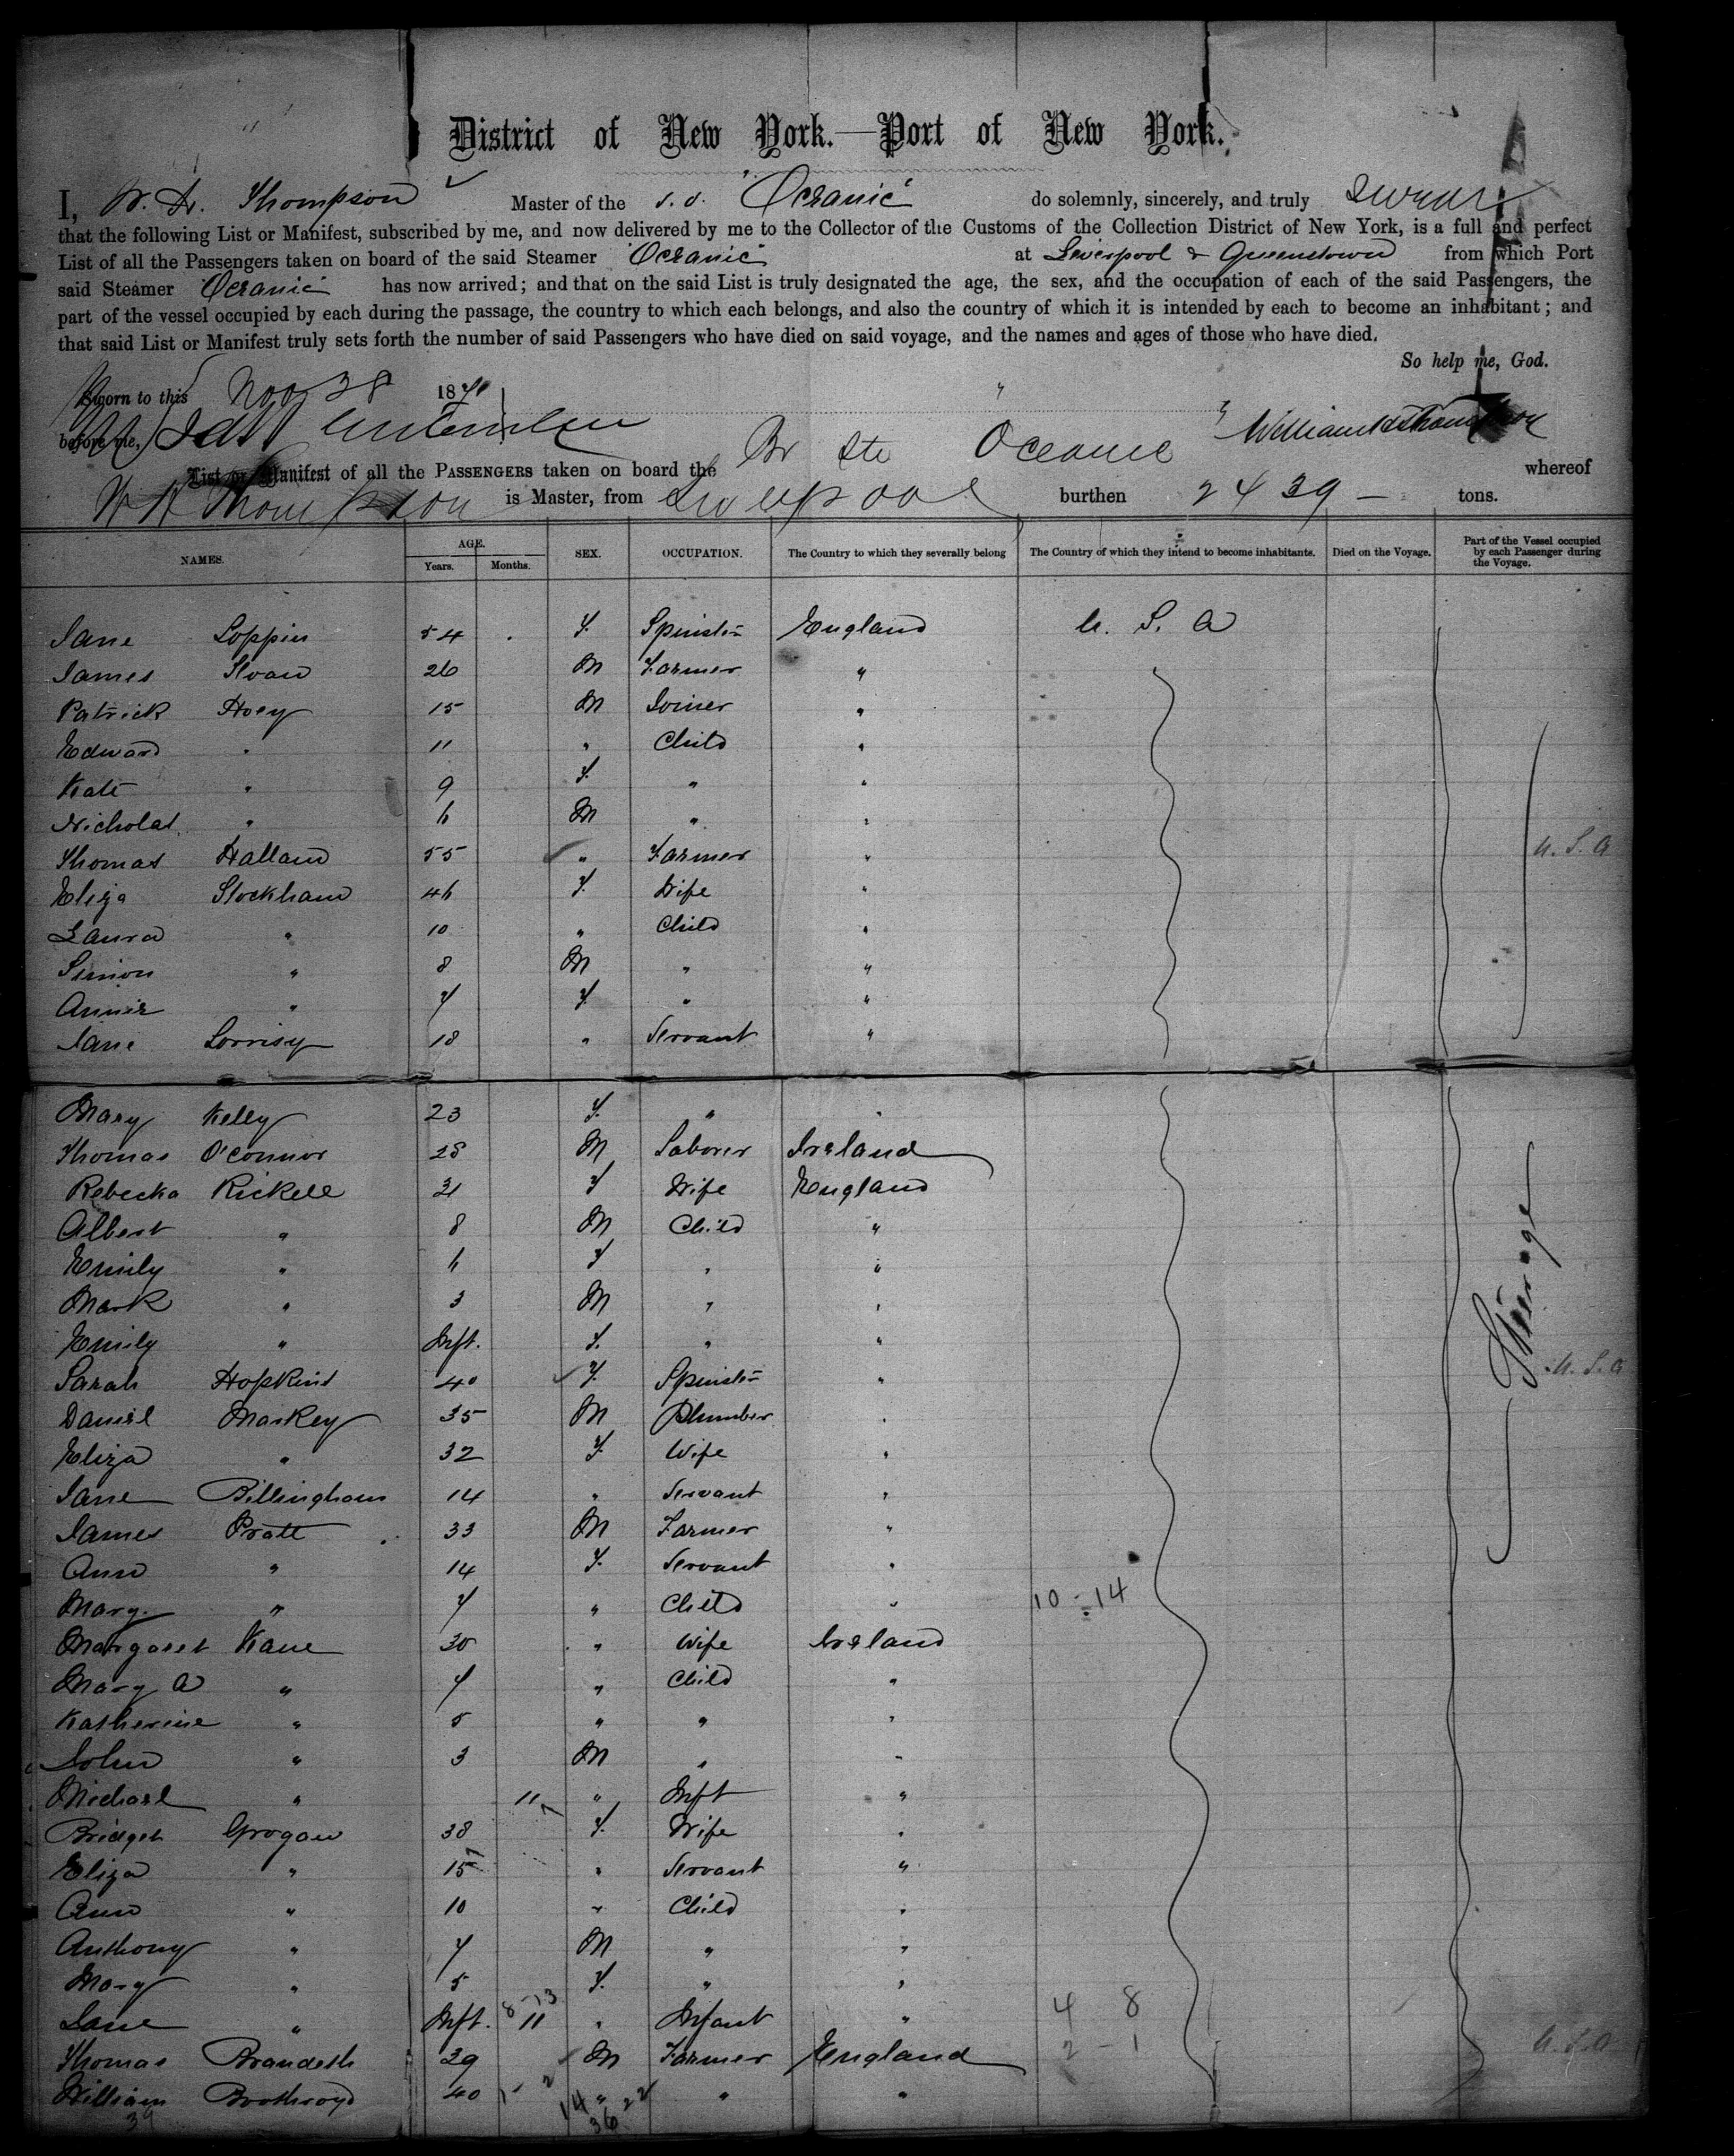 District of New York.—Port of New York.
I, W. H. Thompson Master of the s.s. "Oceanic" do solemnly, sincerely, and truly swear
that the following List or Manifest, subscribed by me, and now delivered by me to the Collector of the Customs of the Collection District of New York, is a full and perfect
List of all the Passengers taken on board of the said Steamer "Oceanic" at Liverpool & Queenstown from which Port
said Steamer Oceanic has now arrived; and that on the said List is truly designated the age, the sex, and the occupation of each of the said Passengers, the
part of the vessel occupied by each during the passage, the country to which each belongs, and also the country of which it is intended by each to become an inhabitant; and
that said List or Manifest truly sets forth the number of said Passengers who have died on said voyage, and the names and ages of those who have died.
So help me, God.
Sworn to this Nov 28 187
before me,
Br Str Oceanic
List or Manifest of all the PASSENGERS taken on board the whereof
W H Thompson is Master, from Liverpool burthen 2439 — tons.
NAMES. AGE. SEX. OCCUPATION. The Country to which they severally belong The Country of which they intend to become inhabitants. Died on the Voyage. Part of the Vessel occupied by each Passenger during the Voyage.
Years. Months.
Jane Loppin 54 F. Spinstr England U. S. A
James Sloan 26 M Farmer "
Patrick Hoey 15 M Joiner "
Edward " 11 " Child "
Kate " 9 F. " "
Nicholas " 6 M " "
Thomas Hallam 55 " Farmer " U.S.A
Eliza Stockham 46 F. Wife "
Laura " 10 " Child "
Simon " 8 M " "
Annie " 7 F. " "
Jane Lorrisy 18 " Servant "
Mary Kelly 23 F. " "
Thomas O'Connor 28 M Laborer Ireland
Rebecka Rickell 31 F Wife England
Albert " 8 M Child "
Emily " 6 F " "
Mark " 3 M " "
Emily " Inft. F. " "
Steerage
Sarah Hopkins 40 F. Spinstr " U.S.A
Daniel Markey 35 M Plumber "
Eliza " 32 F Wife "
Jane Billingham 14 " Servant "
James Pratt 33 M Farmer "
Ann " 14 F. Servant "
Mary " 7 " Child " 10 - 14
Margaret Kane 30 " Wife Ireland
Mary A " 7 " Child "
Katherine " 5 " " "
John " 3 M " "
Michael " 11 " Inft "
Bridget Grogan 38 F. Wife "
Eliza " 15 " Servant "
Ann " 10 " Child "
Anthony " 7 M " "
Mary " 5 F. " "
Jane " Inft. 11 " Infant " 4 8
Thomas Brandeth 29 M Farmer England 2 - 1 U.S.A
William Boothroyd 40 " " "
14 36 22